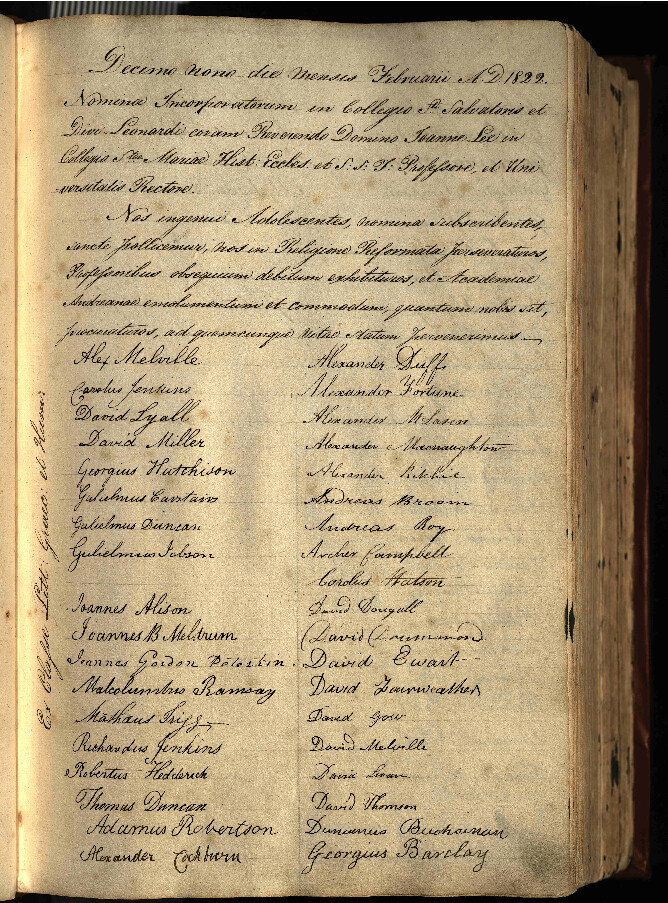 Decimo nono die mensis Februarii A.D. 1822.
Nomina Incorporatorum in Collegio Sti Salvatoris et
Divi Leonardi coram Reverendo Domino Ioanne Lee in
Collegio Stae Mariae Hist: Eccles. et S. S. T. Professore, et Uni
versitatis Rectore.
Nos ingenui Adolescentes, nomina subscribentes,
sancte pollicemur, nos in Religione Reformata perseveraturos,
Professoribus obsequium debitum exhibituros, et Academiae
Andreanae emolumentum et commodum, quantum nobis sit,
procuraturos, ad quemcunque vitae statum pervenerimus
Ex Classe Litt: Graec: et Human:
Alex Melville
Carolus Jenkins
David Lyall
David Miller
Georgius Hutchison
Gulielmus Carstairs
Gulielmus Duncan
Gulielmus Jobson
Ioannes Alison
Ioannes B Meldrum
Ioannes Gordon
Malcolumbus Ramsay
Mathaus Trigg
Richardus Jenkins
Robertus Hedderick
Thomas Duncan
Adamus Robertson
Alexander Cockburn
Alexander Duff
Alexander Fortune
Alexander
Alexander Macnaughton
Alexander Ritchie
Andreas Broom
Andreas Roy
Archer Campbell
Carolus Watson
David Dougall
David Drummond
David Ewart
David Fairweather
David Gow
David Melville
David
David Thomson
Duncanus Buchanan
Georgius Barclay